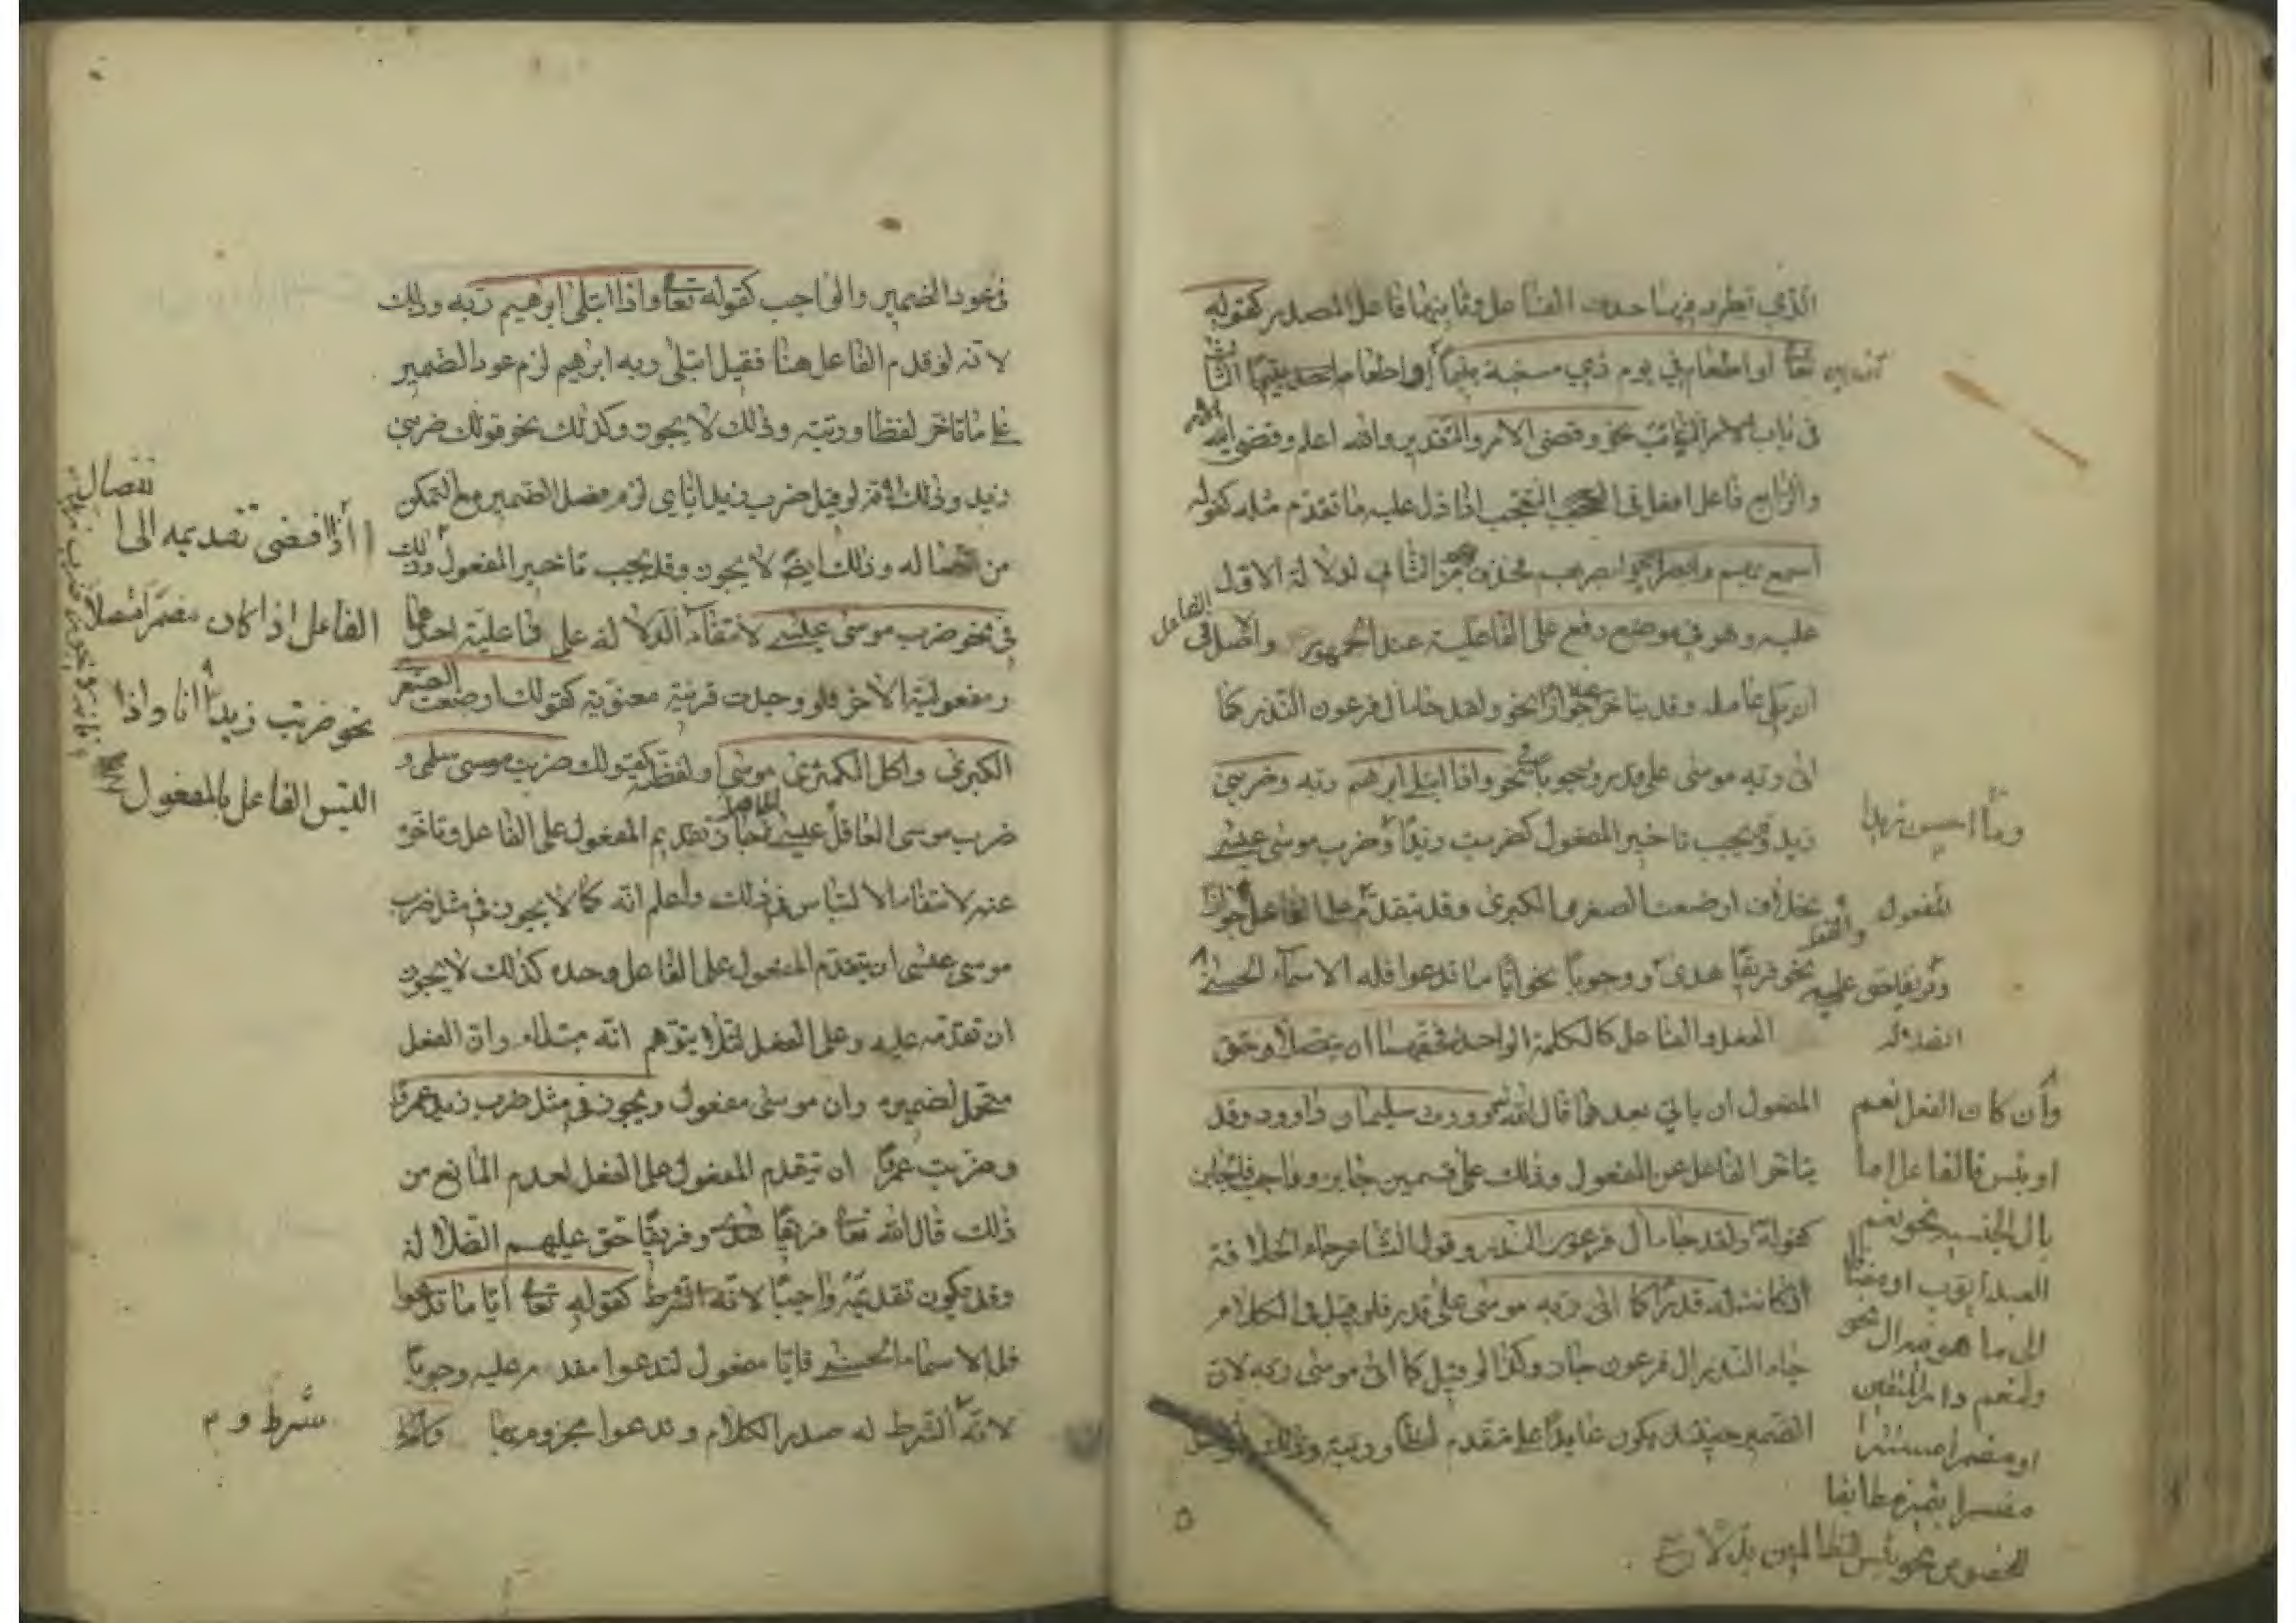 الذي تطرد فيها حذف الفاعل وثانيهما فاعل المصدر كقوله
تعا او اطعام في يوم ذي مسغبة يتيما اي او اطعامه يتيما الثالث
في باب النائب نحو وقضى الامر والتقدير والله اعلم وقضى الله الامر
والرابع فاعل افعل في التعجب اذا دل عليه ما تقدم مثله كقوله
اسمع بهم وابصر اي وابصر بهم فحذف من الثاني لدلالة الاول
عليه وهو في موضع رفع على الفاعلية عند الجمهور والاصل في الفاعل
ان يلي عامله وقد يتاخر جوازا نحو ولقد جاء ال فرعون النذر كما
اتى ربه موسى على قدر ووجوبا نحو واذا ابتلى ابرهيم ربه وضربني
زيد وقد يجب تاخير المفعول كضربت زيدا وضرب موسى عيسى
بخلاف ارضعت الصغرى الكبرى وقد يتقدم على الفاعل جوازا
نحو فريقا هدى ووجوبا نحو ايا ما تدعوا فله الاسماء الحسنى
الفعل والفاعل كالكلمة الواحدة فحقهما ان يتصلا وحق
المفعول ان ياتي بعدهما قال الله تعا وورث سليمان داوود وقد
يتاخر الفاعل عن المفعول وذلك على قسمين جايز وواجب فالجايز
كقوله ولقد جاء ال فرعون النذر وقول الشاعر جاء الخلافة
اذ كانت له قدرا كما اتى ربه موسى على قدر فلو قيل في الكلام
جاء النذر ال فرعون جاز وكذا لو قيل كما اتى موسى ربه لان
الضمير حينئذ يكون عايدا على متقدم لفظا ورتبة وذلك
وما احسن زيدا
المفعول
وفريقا حق عليهم
الضلالة
وان كان الفعل نعم
او بئس فالفاعل اما
بال الجنسية نحو نعم
العبد ايوب او مضافا
الى ما هو فيه ال نحو
ولنعم دار المتقين
او مضمرا مستترا
مفسرا بتميز مطابقا
للمخصوص نحو بئس للظالمين بدلا
فعود الضمير والواجب كقوله تعا واذا ابتلى ابرهيم ربه وذلك
لانه لو قدم الفاعل هنا فقيل ابتلى ربه ابرهيم لزم عود الضمير
على ما تاخر لفظا ورتبة وذلك لا يجوز وكذلك نحو قولك ضربني
زيد وذلك لانه لو قيل ضرب زيد اياي لزم فصل الضمير مع التمكن
من اتصاله وذلك ايضا لا يجوز وقد يجب تاخير المفعول وذلك
في نحو ضرب موسى عيسى لانتفاء الدلالة على فاعلية احدهما
ومفعولية الاخر فلو وجدت قرينة معنوية كقولك ارضعت الصغرى
الكبرى واكل الكمثرى موسى او لفظية كقولك ضربت موسى سلمى و
ضرب موسى العاقل عيسى جاز تقديم المفعول على الفاعل وتاخره
عنه لانتفاء الالتباس في ذلك واعلم انه كما لا يجوز في مثل ضرب
موسى عيسى ان يتقدم المفعول على الفاعل وحده كذلك لا يجوز
ان تقدمه عليه وعلى الفعل لئلا يتوهم انه مبتداء وان الفعل
متحمل لضميره وان موسى مفعول ويجوز في مثل ضرب زيد عمرا
وضربت عمرا ان تيقدم المفعول على الفعل لعدم المانع من
ذلك قال الله تعا فريقا هدى وفريقا حق عليهم الضلالة
وقد يكون تقديمه واجبا لانه الشرط كقوله تعا ايا ما تدعوا
فله الاسماء الحسنى فايا مفعول لتدعوا مقدم عليه وجوبا
لانه الشرط له صدر الكلام وتدعوا مجزوم بها
اذا افضى تقديمه الى انفصال
الفاعل اذا كان مضمرا متصلا
نحو ضربت زيدا انا واذا
التبس الفاعل بالمفعول
شرط و م